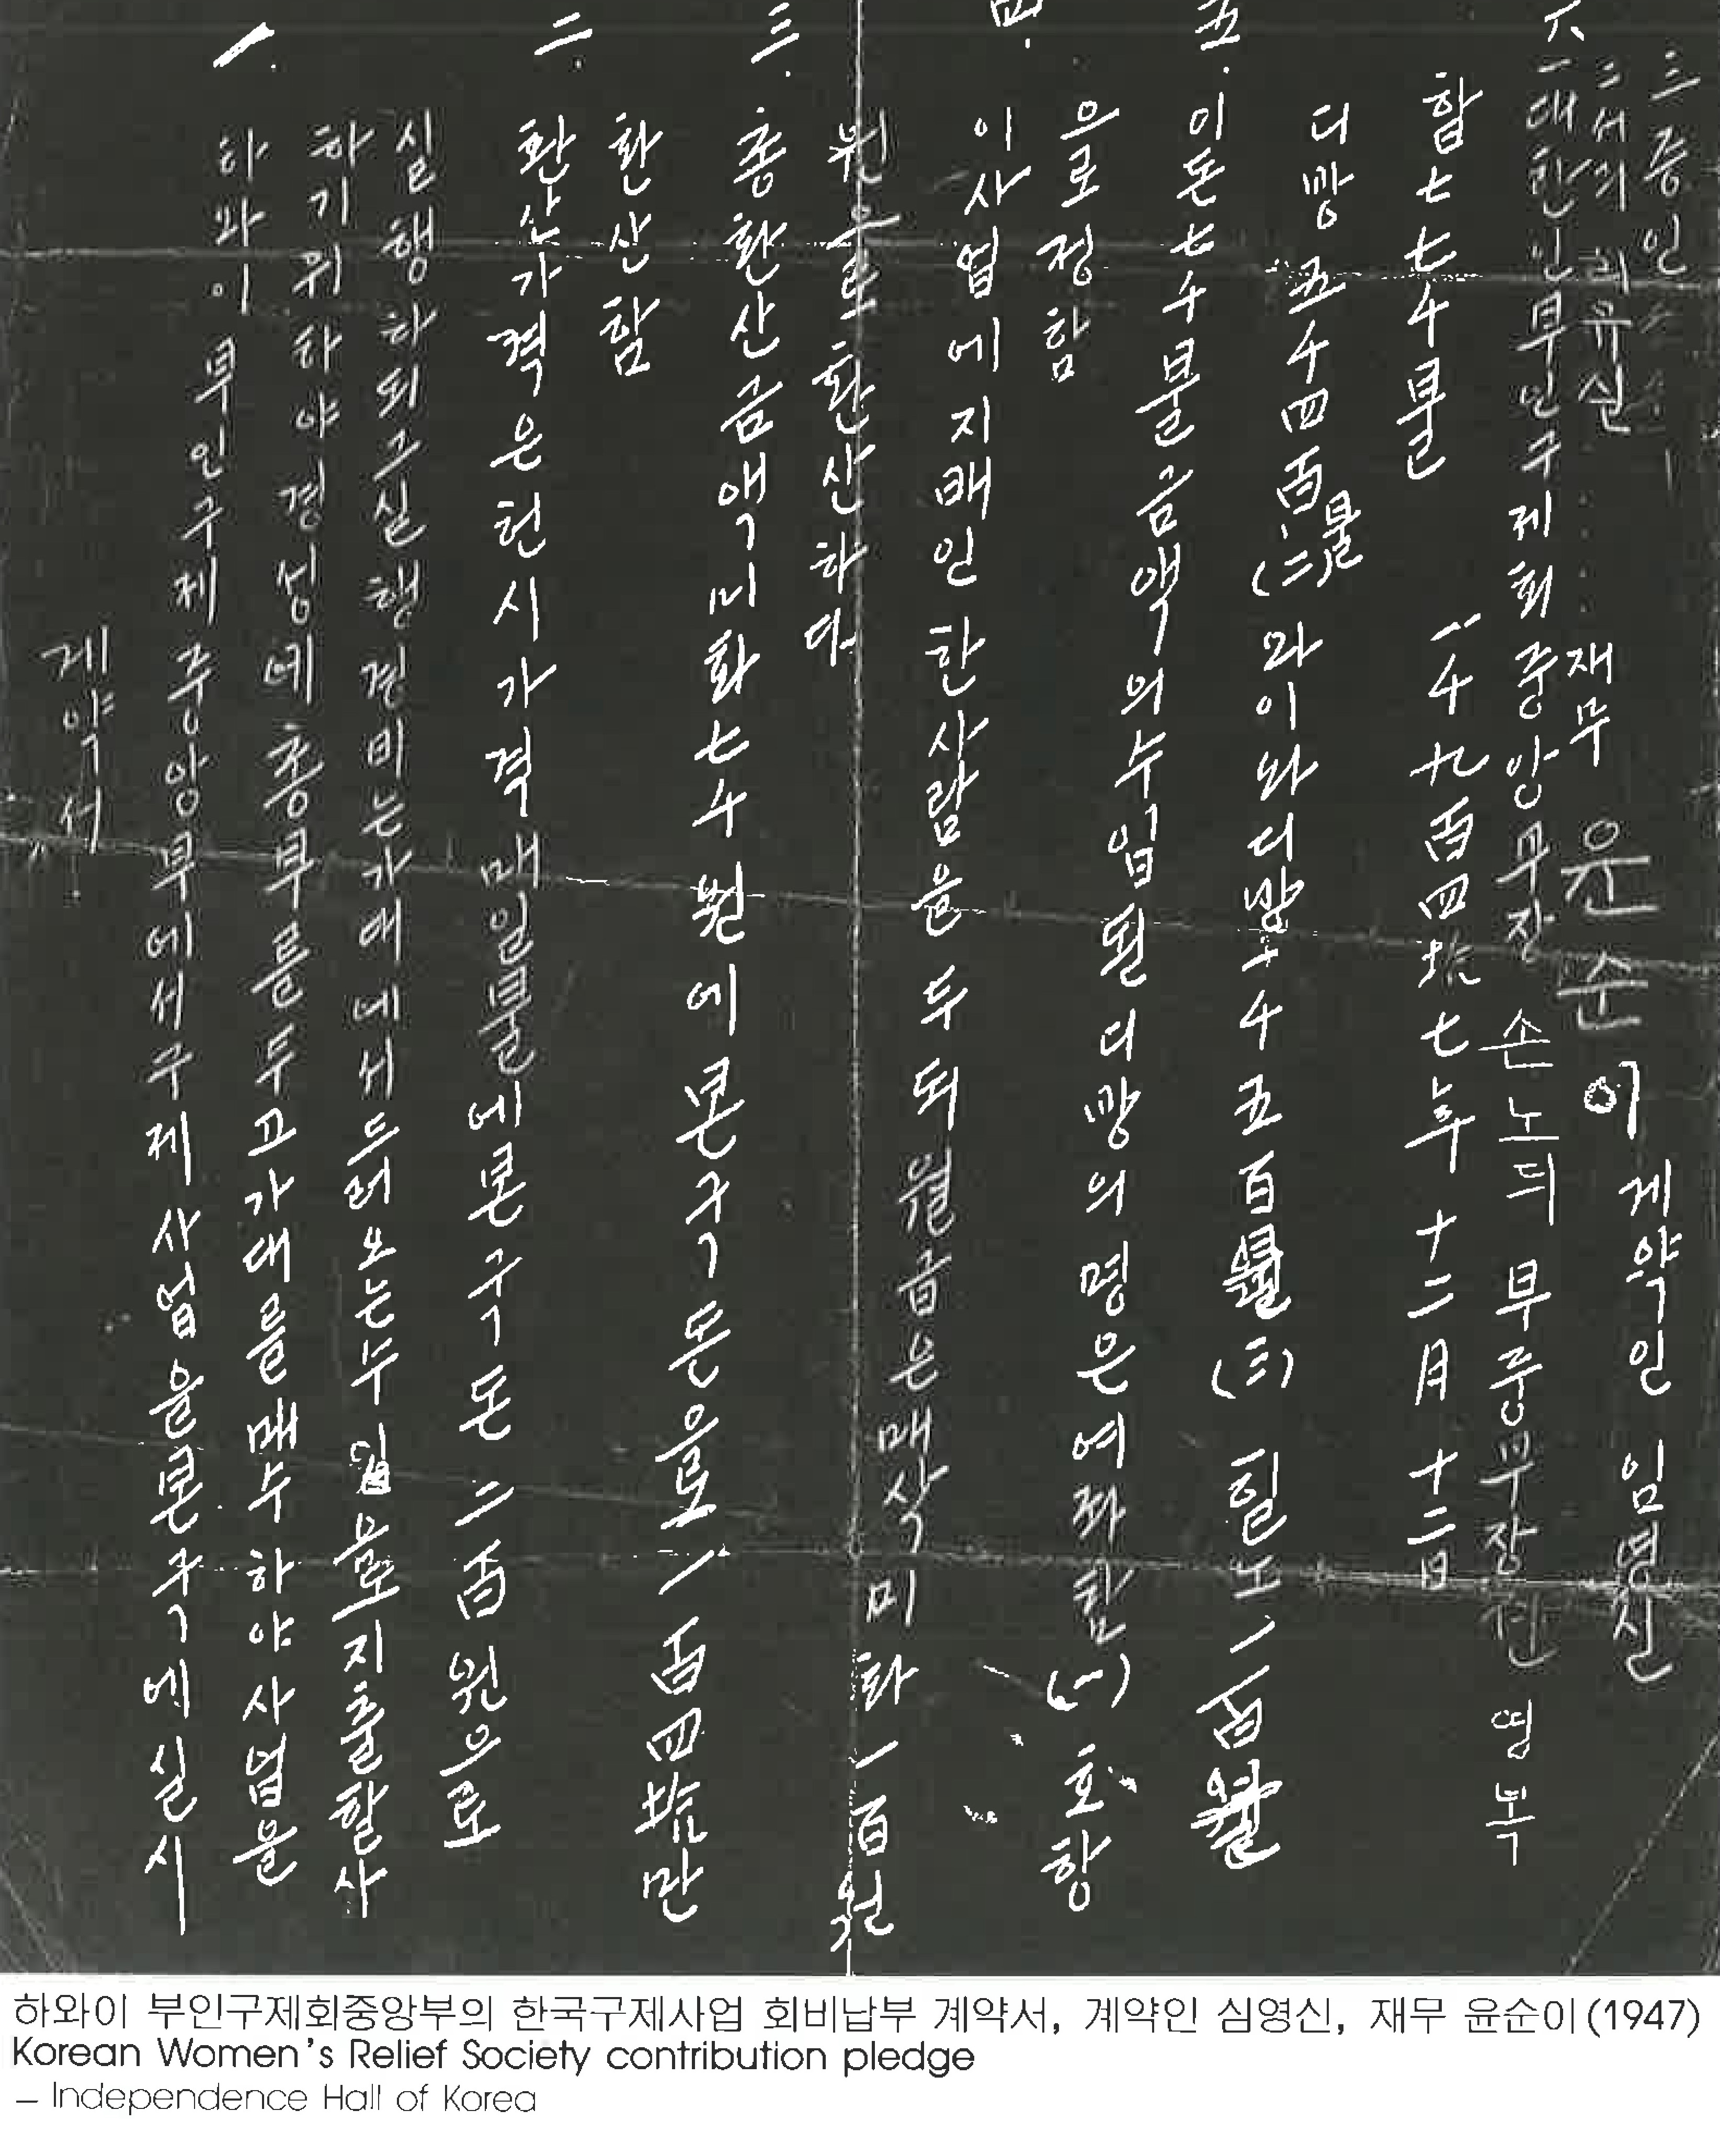 계약서.
一. 하와이 부인구제 중앙부에서 구제사업을 본국에 실시
하기위하야 경성에 총부를 두고 가대를 매수하야 사업을
실행하되 구실행경비는 가대에서 드러오는 수입으로 지출할사
二. 환산가격은 현시가격 매일불에 본국돈 二百원으로
환산함
三. 총환산금액 미화七千원에 본국돈으로 一百四拾만
원으로 환산하다
四. 이사업에 지배인 한사람을 두되 월급은 매삭 미화 一百원
으로 정함
五. 이돈 七千불 금액의 수입된 디망의 명은 여좌함 (一) 호항
디망 五千四百불 (二) 와이와 디망 千五百불 (三) 힐노 一百불
합 七千불 一千九百四拾七年 十二月 十二日
六. 一 대한인부인구제회 중앙부장 손노듸 부중부장 영복
二 서긔 리유실 재무 윤순이
三 증인 계약인 신
하와이 부인구제회중앙부의 한국구제사업 회비납부 계약서, 계약인 심영신, 재무 윤순이(1947)
Korean Women's Relief Society contribution pledge
– Independence Hall of Korea